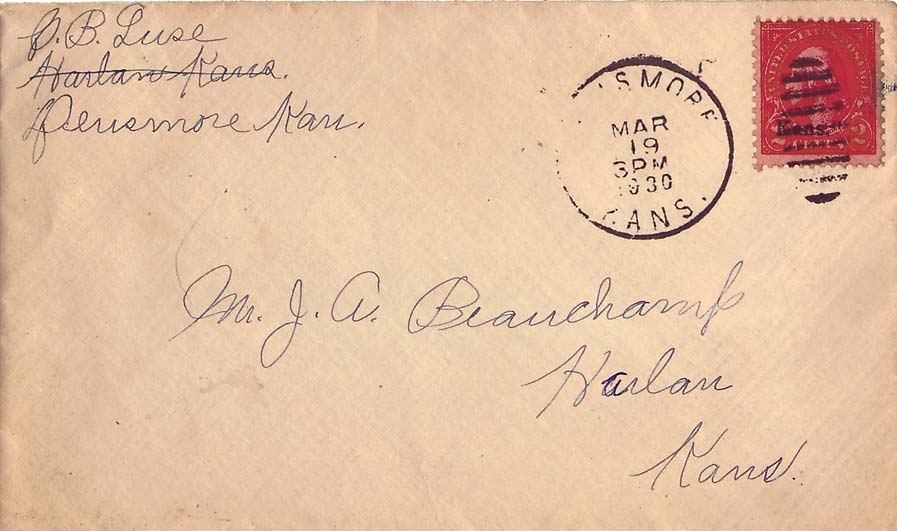 J. B. Luse
Harlan Kans.
Densmore Kan.
UNITED STATES POSTAGE
Kans.
2 2
NSMORE
MAR
19
3PM
1930
KANS.
Mr. J. A. Beauchamp
Harlan
Kans.